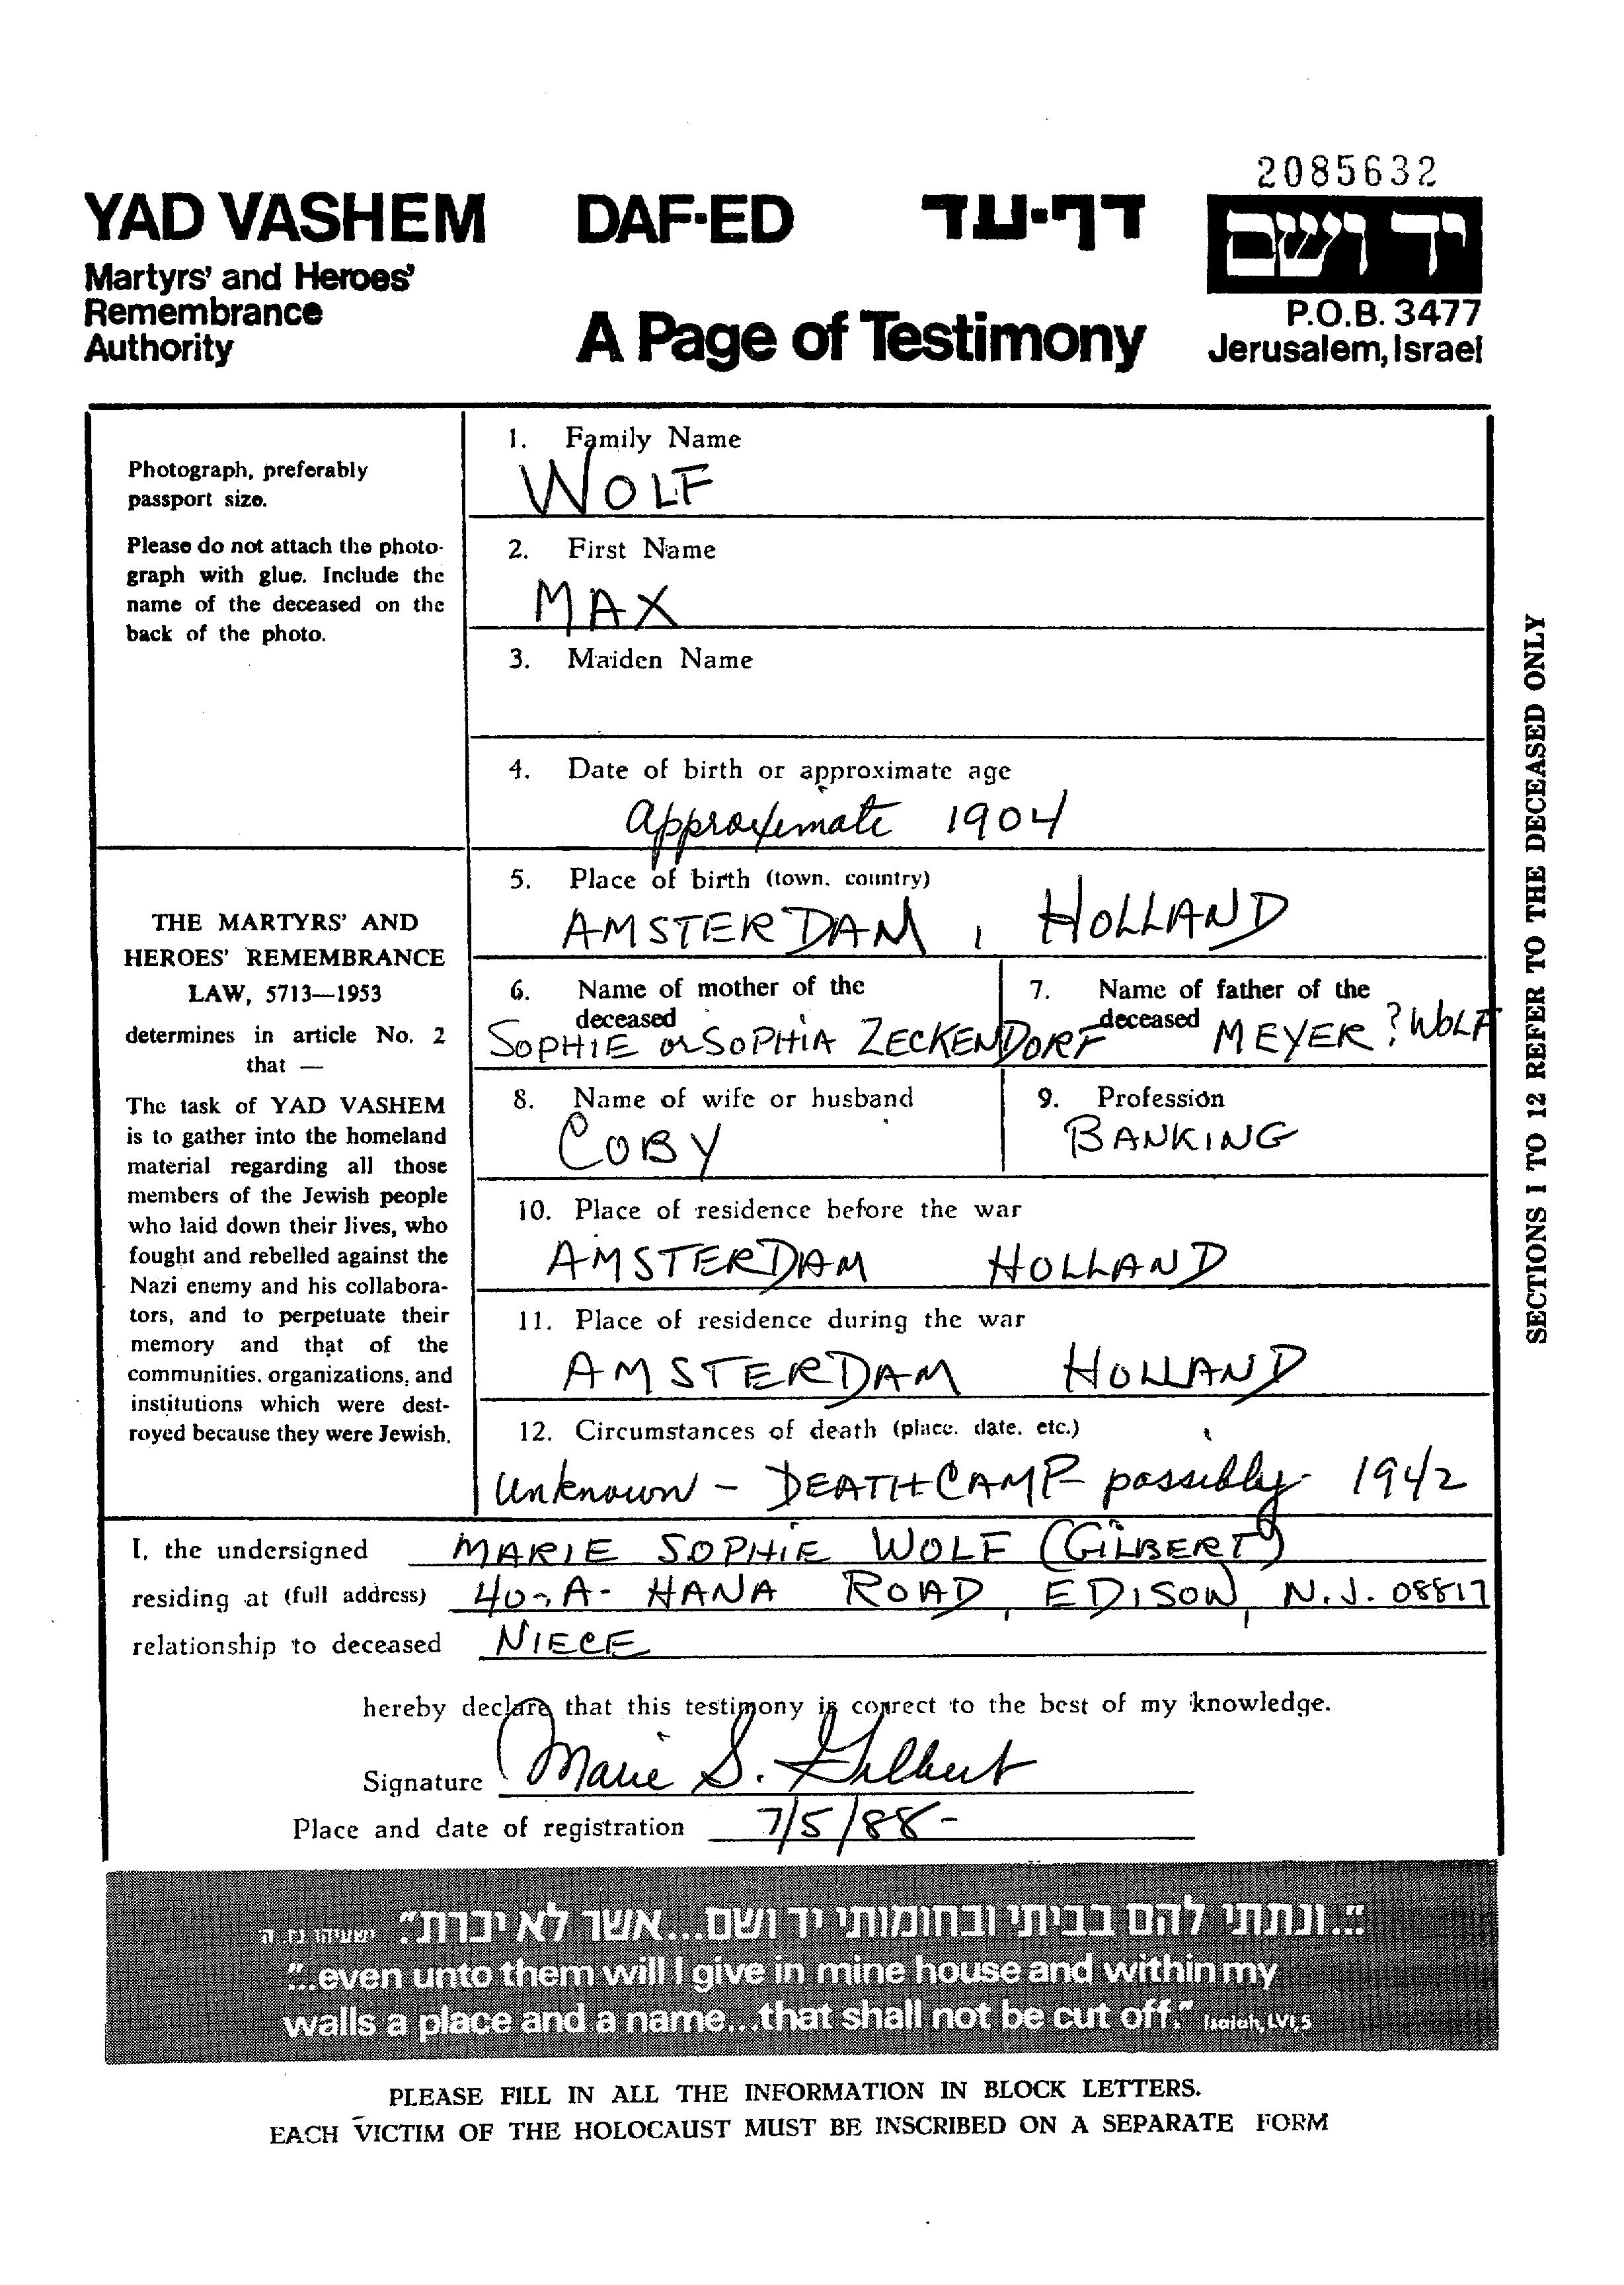 2085632
YAD VASHEM DAF-ED דף-עד יד ושם
Martyrs' and Heroes'
Remembrance
Authority
A Page of Testimony
P.O.B. 3477
Jerusalem, Israel
Photograph, preferably
passport size.
Please do not attach the photo-
graph with glue. Include the
name of the deceased on the
back of the photo.
THE MARTYRS' AND
HEROES' REMEMBRANCE
LAW, 5713—1953
determines in article No. 2
that —
The task of YAD VASHEM
is to gather into the homeland
material regarding all those
members of the Jewish people
who laid down their lives, who
fought and rebelled against the
Nazi enemy and his collabora-
tors, and to perpetuate their
memory and that of the
communities, organizations, and
institutions which were dest-
royed because they were Jewish.
1. Family Name
WOLF
2. First Name
MAX
3. Maiden Name
4. Date of birth or approximate age
approximate 1904
5. Place of birth (town, country)
AMSTERDAM, HOLLAND
6. Name of mother of the
deceased
SOPHIE or SOPHIA ZECKENDORF
7. Name of father of the
deceased
MEYER ? WOLF
8. Name of wife or husband
COBY
9. Profession
BANKING
10. Place of residence before the war
AMSTERDAM HOLLAND
11. Place of residence during the war
AMSTERDAM HOLLAND
12. Circumstances of death (place, date, etc.)
Unknown - DEATH CAMP possibly 1942
SECTIONS 1 TO 12 REFER TO THE DECEASED ONLY
I, the undersigned MARIE SOPHIE WOLF (GILBERT)
residing at (full address) 40-A- HANA ROAD, EDISON, N.J. 08817
relationship to deceased NIECE
hereby declare that this testimony is correct to the best of my knowledge.
Signature Marie S. Gilbert
Place and date of registration 7/5/88-
"...ונתתי להם בביתי ובחומותי יד ושם...אשר לא יכרת." ישעיהו נו ה
"..even unto them will I give in mine house and within my
walls a place and a name...that shall not be cut off." Isaiah, LVI,5
PLEASE FILL IN ALL THE INFORMATION IN BLOCK LETTERS.
EACH VICTIM OF THE HOLOCAUST MUST BE INSCRIBED ON A SEPARATE FORM